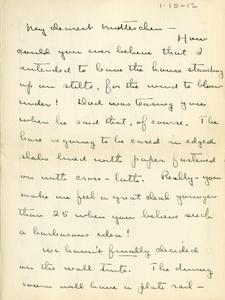 1-10-12
My dearest Mutterchen -
How
could you ever believe that I
intended to leave the house standing
up on stilts, for the wind to blow
under! Dad was teasing you
when he said that, of course. The
base is going to be cased in edged
slabs lined with paper fastened
on with cross-laths. Really - you
make me feel a great deal younger
than 25 when you believe such
a barbarous idea!
We haven't finally decided
on the wall tints. The dining
room will have a plate rail -